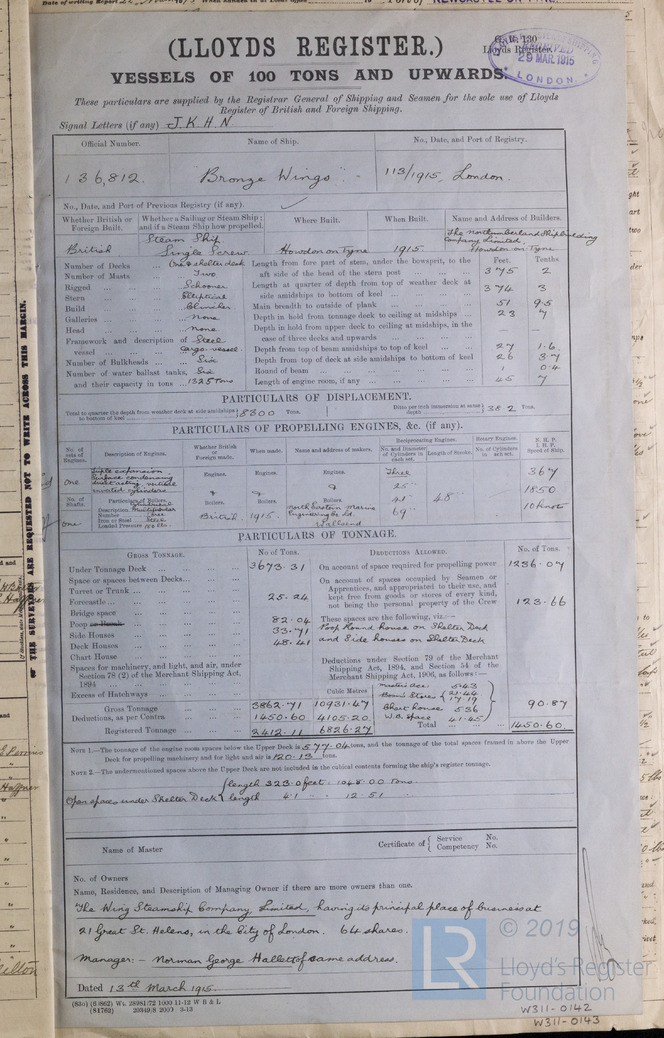 Port of NEWCASTLE-ON-TYNE.
(LLOYDS REGISTER.)
Lloyds Register
29 MAR. 1915
LONDON.
VESSELS OF 100 TONS AND UPWARDS.
These particulars are supplied by the Registrar General of Shipping and Seamen for the sole use of Lloyds
Register of British and Foreign Shipping.
Signal Letters (if any) J.K.H.N
Official Number. Name of Ship. No., Date, and Port of Registry.
136,812. Bronze Wings 113/1915, London.
No., Date, and Port of Previous Registry (if any).
Whether British or Foreign Built. Whether a Sailing or Steam Ship; and if a Steam Ship how propelled. Where Built. When Built. Name and Address of Builders.
British Steam Ship Single Screw Howdon on Tyne 1915. The Northumberland Shipbuilding Company Limited, Howdon on Tyne
Feet. Tenths
Number of Decks ... One & shelter deck
Number of Masts ... Two
Rigged ... Schooner
Stern ... Elliptical
Build ... Clincher
Galleries ... None
Head ... None
Framework and description of vessel ... Steel Cargo vessel
Number of Bulkheads ... Six
Number of water ballast tanks, and their capacity in tons ... Six 1325 Tons
Length from fore part of stem, under the bowsprit, to the aft side of the head of the stern post ... 375 2
Length at quarter of depth from top of weather deck at side amidships to bottom of keel ... 374 3
Main breadth to outside of plank ... 51 9.5
Depth in hold from tonnage deck to ceiling at midships ... 23 7
Depth in hold from upper deck to ceiling at midships, in the case of three decks and upwards ... — —
Depth from top of beam amidships to top of keel ... 27 1.6
Depth from top of deck at side amidships to bottom of keel 26 3.7
Round of beam ... 1 0.4
Length of engine room, if any ... 45 7
PARTICULARS OF DISPLACEMENT.
Total to quarter the depth from weather deck at side amidships to bottom of keel 8300 Tons. Ditto per inch immersion at same depth 38.2 Tons.
PARTICULARS OF PROPELLING ENGINES, &c. (if any).
No. of sets of Engines. Description of Engines. Whether British or Foreign made. When made. Name and address of makers. Reciprocating Engines. Rotary Engines. N. H. P. I. H. P. Speed of Ship.
No. and Diameter of Cylinders in each set. Length of Stroke. No. of Cylinders in each set.
One Triple expansion, Surface condensing direct acting, vertical inverted cylinders Engines. Engines. Engines. Three 25" 41" 69" 48" 367 1850 10 knots
No. of Shafts. Particulars of Boilers. Boilers. Boilers. Boilers.
One Description Number Three Iron or Steel Steel Loaded Pressure British. 1915. North Eastern Marine Engineering Co Ld. Wallsend
PARTICULARS OF TONNAGE.
GROSS TONNAGE. No of Tons. DEDUCTIONS ALLOWED. No. of Tons.
Under Tonnage Deck ... 3673.31
Space or spaces between Decks...
Turret or Trunk ...
Forecastle ... 25.24
Bridge space ...
Poop or Break ... 82.04
Side Houses ... 33.71
Deck Houses ... 48.41
Chart House ...
Spaces for machinery, and light, and air, under Section 78 (2) of the Merchant Shipping Act, 1894
Excess of Hatchways ...
On account of space required for propelling power 1236.07
On account of spaces occupied by Seamen or Apprentices, and appropriated to their use, and kept free from goods or stores of every kind, not being the personal property of the Crew 123.66
These spaces are the following, viz.:—
Poop Round house on Shelter Deck
and Side houses on Shelter Deck
Deductions under Section 79 of the Merchant Shipping Act, 1894, and Section 54 of the Merchant Shipping Act, 1906, as follows:—
Masters acc: 5.43
Boosn Stores 21.44 17.19
Chart house 5.36
W.B. space 41.45
90.87
Cubic Metres
Gross Tonnage 3862.71 10931.47
Deductions, as per Contra 1450.60 4105.20
Registered Tonnage 2412.11 6826.27
Total 1450.60
NOTE 1.—The tonnage of the engine room spaces below the Upper Deck is 577.04 tons, and the tonnage of the total spaces framed in above the Upper
Deck for propelling machinery and for light and air is 120.13 tons.
NOTE 2.—The undermentioned spaces above the Upper Deck are not included in the cubical contents forming the ship's register tonnage.
Open spaces under Shelter Deck { length 323.0 feet. 1048.00 Tons
length 4.1 " 12.51 "
Name of Master Certificate of { Service No. Competency No.
No. of Owners
Name, Residence, and Description of Managing Owner if there are more owners than one.
The Wing Steamship Company, Limited, having its principal place of business at
21 Great St. Helens, in the City of London. 64 shares.
Manager:— Norman George Hallett of same address.
Dated 13th March 1915.
(830) (6862) Wt. 28981/72 1000 11-12 W B & L
(81762) 20349/8 2000 3-13
OF THE SURVEYORS ARE REQUESTED NOT TO WRITE ACROSS THIS MARGIN.
LR
© 2019
Lloyd's Register
Foundation
W311-0142
W311-0143